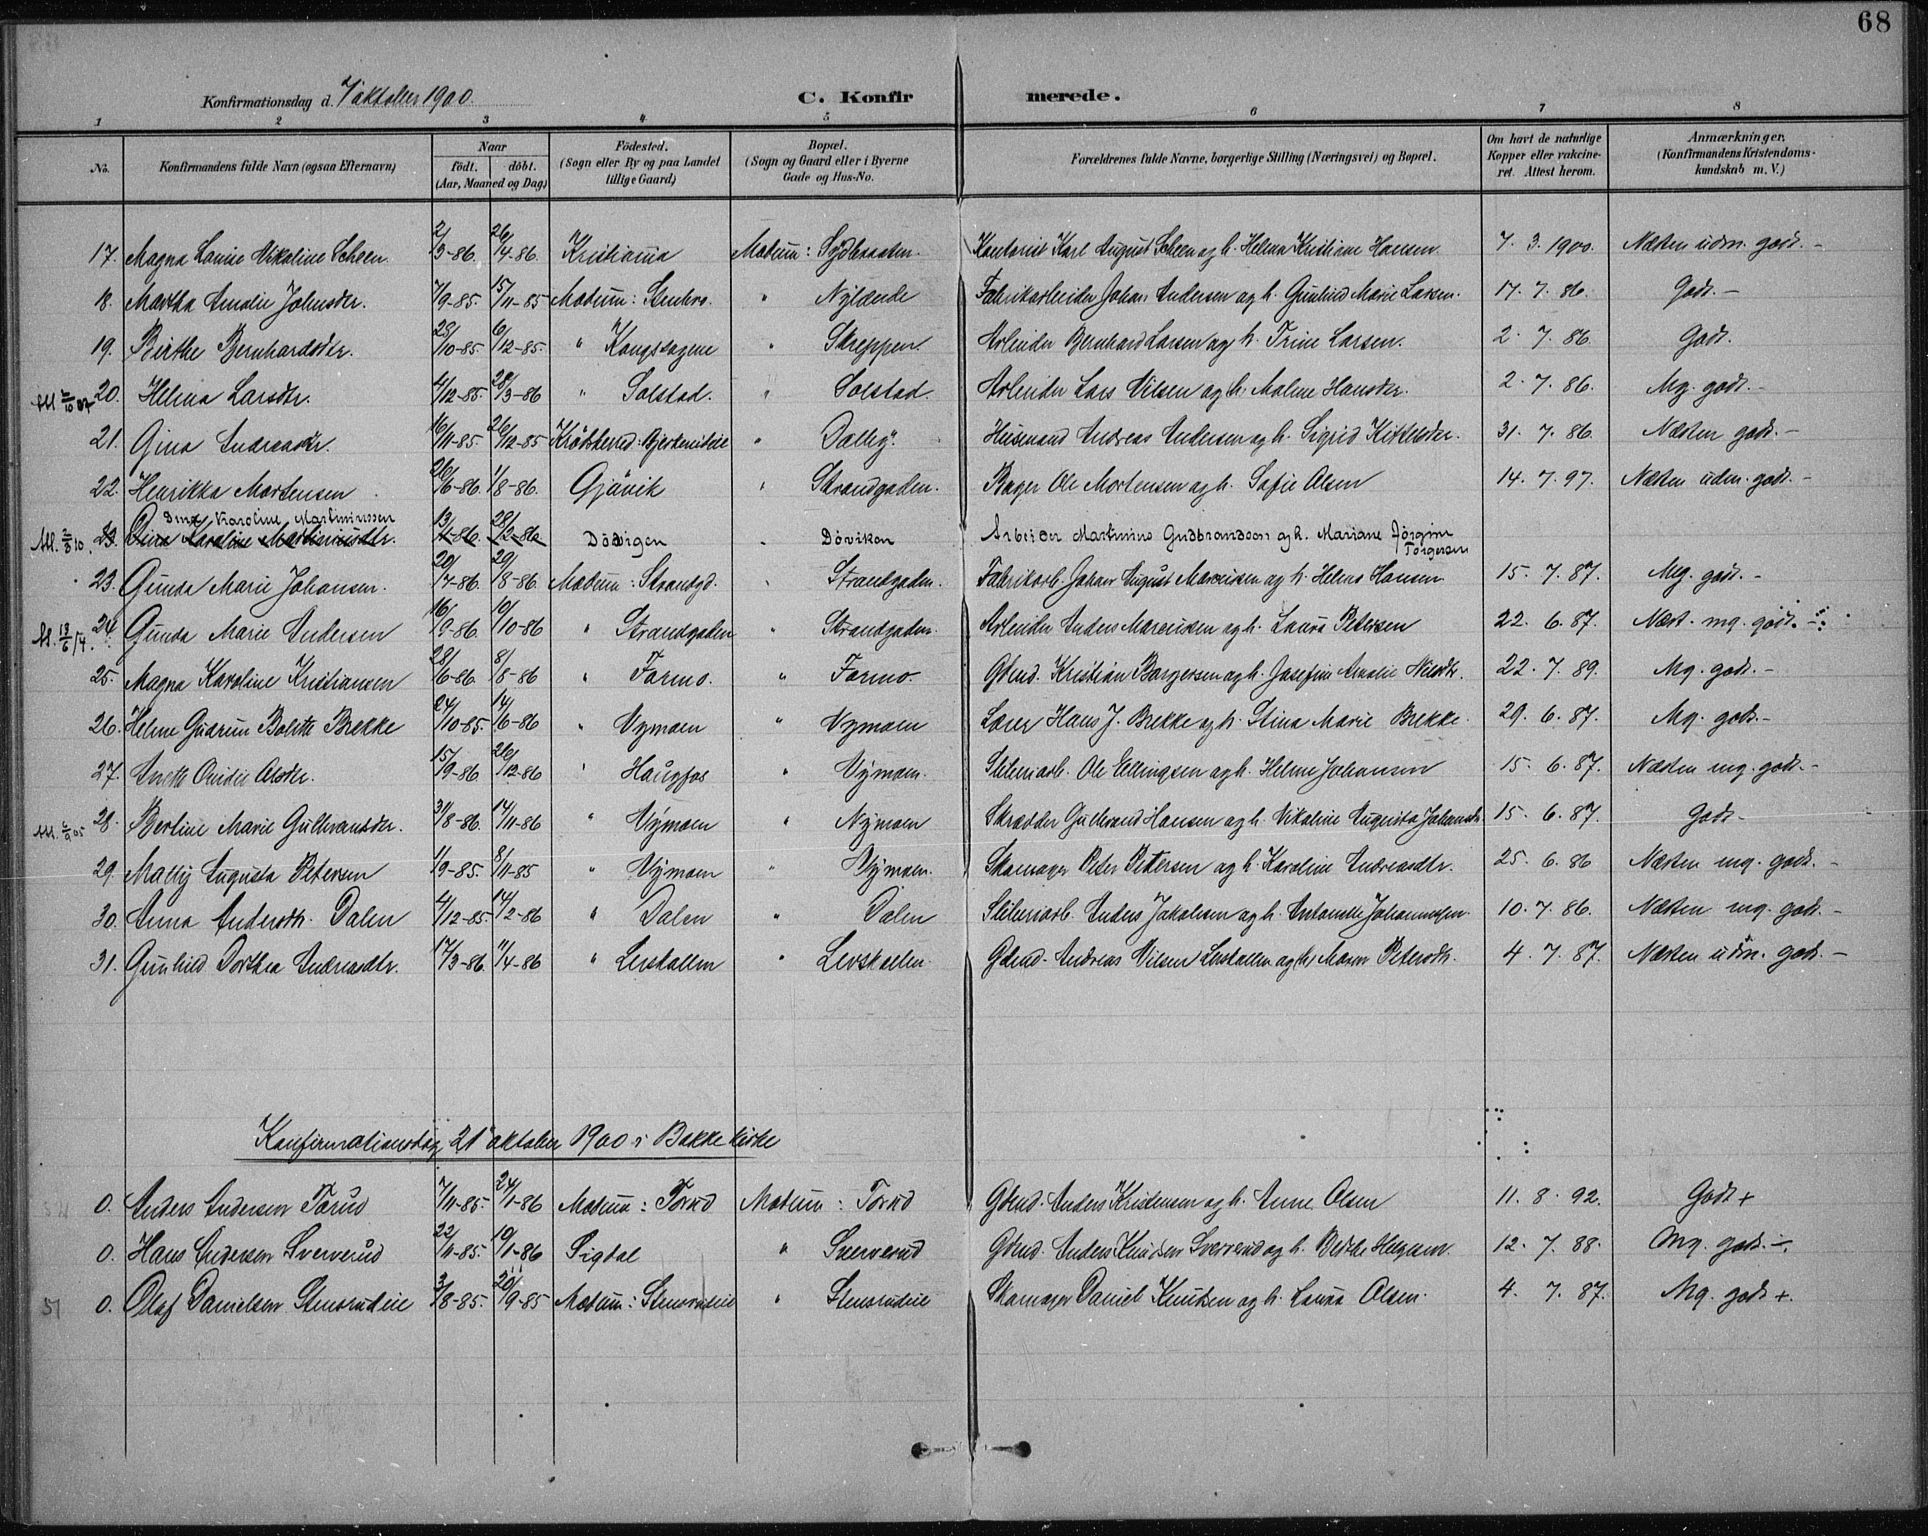 68
Konfirmationsdag d. 7 oktober 1900.
C. Konfirmerede.
1 2 3 4 5 6 7 8
No. Konfirmandens fulde Navn (ogsaa Efternavn) Naar Födt. döbt. (Aar, Maaned og Dag) Födested. (Sogn eller By og paa Landet tillige Gaard) Bopæl. (Sogn og Gaard eller i Byerne Gade og Hus-No. Forældrenes fulde Navne, borgerlige Stilling (Næringsvei) og Bopæl. Om havt de naturlige Kopper eller vakcineret. Attest herom. Anmærkninger. (Konfirmandens Kristendomskundskab m. V.)
17. Magna Louise Nikoline Scheen 2/3-86. 26/4-86. Kristiania Modum: Kontorist Karl August Scheen og h. Helma Kristiane Hansen 7. 3. 1900. Næsten udm. godt. -
18. Martha Amalie Johnsdtr. 7/9-85. 15/11-85 Modum: Stenbro. " Nylænde Fabrikarbeider Johan Andersen og h. Gunhild Marie Larsen. 17. 7. 86. Godt. -
19. Birthe Bernhardsdtr. 23/10-85. 6/12-85. " Kongssagene " Skreppen. Arbeider Bernhard Larsen og h. Trine Larsen. 2. 7. 86. Godt.
20. Helma Larsdtr. 4/12-85. 28/3-86 " Solstad. " Solstad. Arbeider Lars Nilsen og h. Malene Hansdtr. 2. 7. 86. Mg. godt. -
21. Gina Andreasdtr. 16/11-85. 26/12-85 Krödsherad: " Dalby. Husmand Andreas Andersen og h. Sigrid Kittelsdtr. 31. 7. 86. Næsten godt. -
22. Henrikka Mortensen 26/6-86. 1/8-86. Gjövik " Strandgaden. Bager Ole Mortensen og h. Sofie Olsen 14. 7. 97. Næsten udm. godt. -
Dina Karoline Martiniussen
23. Dina Karoline Martiniusdtr. 13/1-86. 28/2-86. Dövigen " Dövikon Arbeider Martinius Gudbrandsen og h. Mariane Jörgine Torgersen
23. Gunda Marie Johansen. 20/7-86. 29/8-86. Modum: Strandgd. " Strandgaden. Fabrikarb. Johan August Marcusen og h. Helene Hansen 15. 7. 87. Mg. godt. -
24. Gunda Marie Andersen 16/9-86. 10/10-86 " Strandgaden " Strandgaden. Arbeider Anders Marcusen og h. Laura Petersen 22. 6. 87. Næst. mg. godt. -
25. Magna Karoline Kristiansen 28/6-86. 8/8-86 " Formo. " Formo. Gdmd. Kristian Borgersen og h. Josefine Amalie Nilsdtr. 22. 7. 89. Mg. godt. -
26. Helene Gudrun Bolette Brekke 24/10-85. 14/6-86 " Nymoen " Nymoen Lærer Hans J. Brekke og h. Stina Marie Brekke. 29. 6. 87. Mg. godt. -
27. Anette Ovidie Olsdtr. 15/9-86 26/12-86 " Haugfos " Nymoen. Sliberiarb. Ole Ellingsen og h. Helene Johansen 15. 6. 87. Næsten mg. godt. -
28. Berline Marie Gulbrandsdtr. 31/8-86. 14/11-86 " Nymoen " Nymoen Skrædder Gulbrand Hansen og h. Nikoline Augusta Johansdtr. 15. 6. 87. Godt -
29. Mally Augusta Petersen 1/9-85. 8/11-85 " Nymoen " Nymoen. Skomager Peter Petersen og h. Karoline Andreasdtr. 25. 6. 86 Næsten mg. godt. -
30. Anna Andersdtr. Dalen 4/12-85. 14/2-86 " Dalen " Dalen Sliberiarb. Anders Jakobsen og h. Antonette Johannesen. 10. 7. 86. Næsten mg. godt. -
31. Gunhild Dorthea Andreasdtr. 17/3-86. 11/4-86 " Levskollen " Levskollen. Gdmd. Andreas Nilsen Levskollen og h. Maren Petersdtr. 4. 7. 87. Næsten udm. godt. -
Konfirmationsdag 21 oktober 1900 i Bakke kirke
0. Anders Andersen Torud 7/11-85. 24/1-86 Modum: Torud Modum: Torud Gdmd. Anders Kristensen og h. Anne Olsen 11. 8. 92. Godt +
0. Hans Andersen Sververud 22/11-85. 10/1-86 Sigdal " Sververud Gdmd. Anders Knudsen Sververud og h. Berthe Helgesen. 12. 7. 88. Mg. godt. -
51 0. Olaf Danielsen Stensrudeie 3/8-85. 20/9-85 Modum: Stensrudeie " Stensrudeie Skomager Daniel Knutsen og h. Laura Olsen. 4. 7. 87. Mg. godt +.